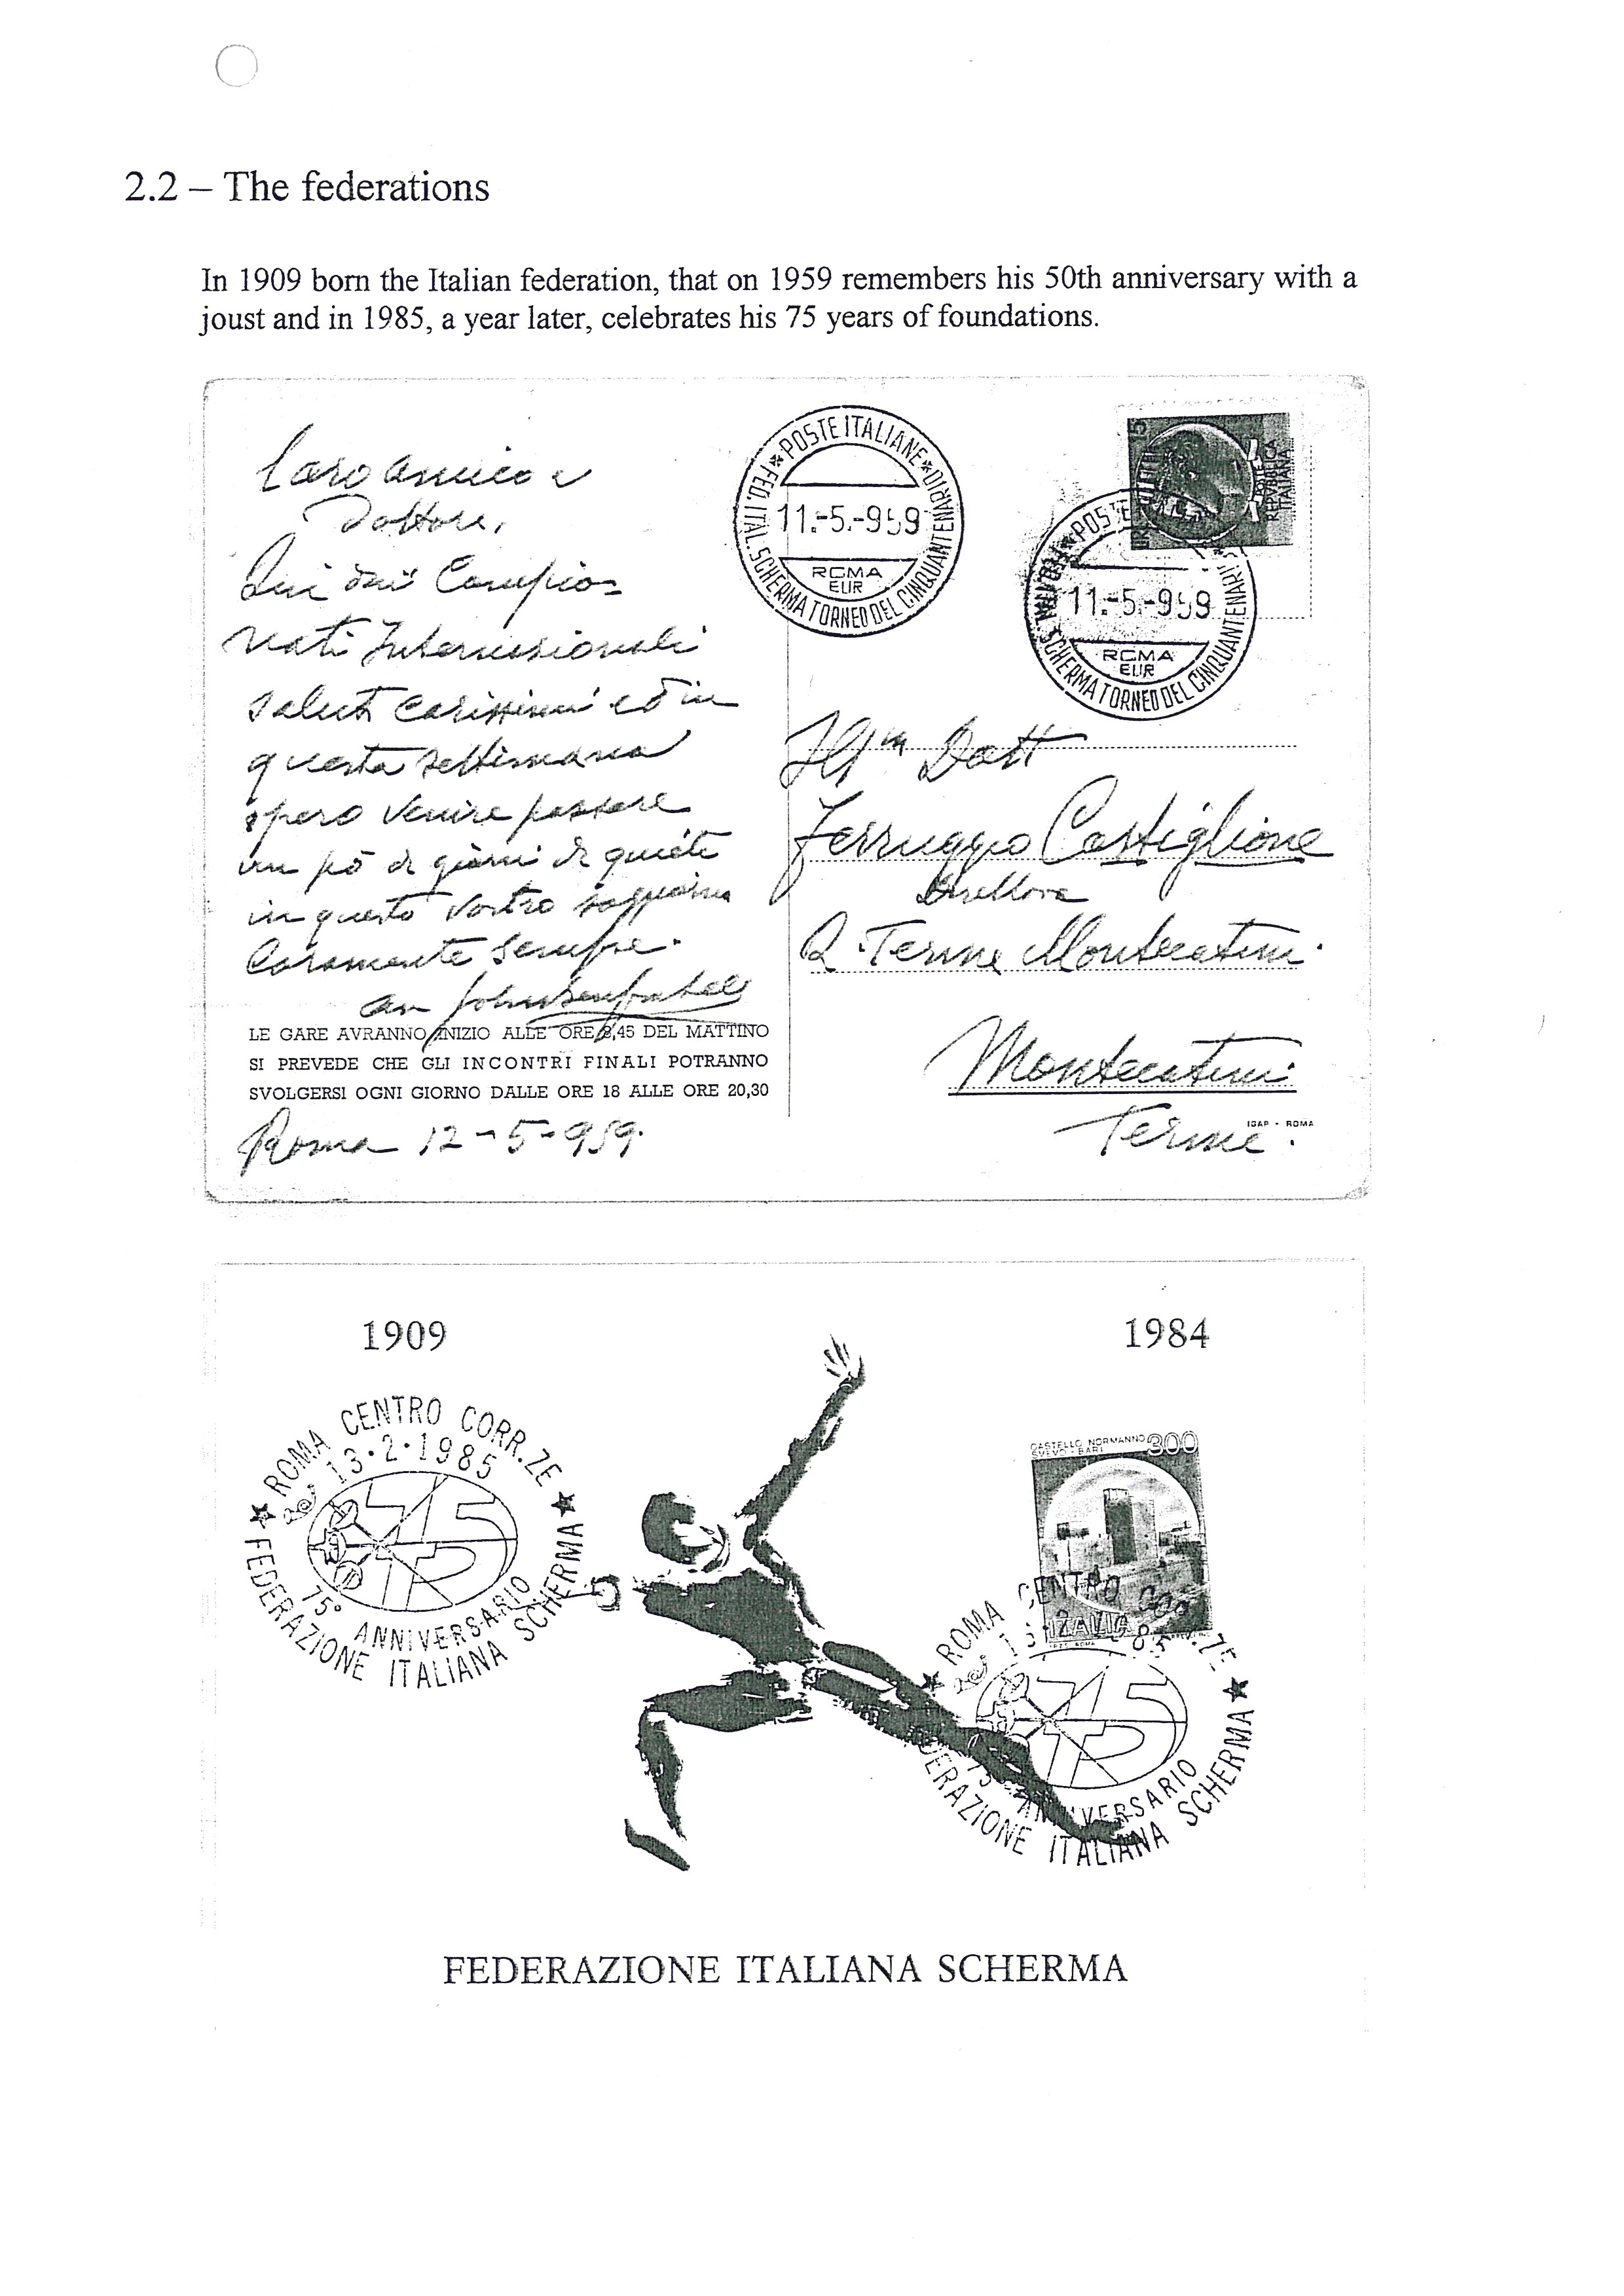 2.2 – The federations
In 1909 born the Italian federation, that on 1959 remembers his 50th anniversary with a
joust and in 1985, a year later, celebrates his 75 years of foundations.
Caro amico e
Dottore,
Qui dai Campio=
nati Internazionali
saluti carissimi ed in
questa settimana
spero venire passare
un pò di giorni di quiete
in questo Vostro soggiorno
Caramente sempre.
LE GARE AVRANNO INIZIO ALLE ORE 8,45 DEL MATTINO
SI PREVEDE CHE GLI INCONTRI FINALI POTRANNO
SVOLGERSI OGNI GIORNO DALLE ORE 18 ALLE ORE 20,30
Roma 12-5-959.
★ POSTE ITALIANE ★
FED. ITAL. SCHERMA TORNEO DEL CINQUANTENARIO
11.-5.-959
ROMA
EUR
POSTE
REPVBBLICA
ITALIANA
POSTE
SCHERMA TORNEO DEL CINQUANTENARI
11.-5.-959
ROMA
EUR
Ill.m Dott
Ferruggio Castiglione
Direttore
R. Terme Montecatini.
Montecatini
Terme.
IGAP - ROMA
1909
1984
★ ROMA CENTRO CORR.ZE ★
13·2·1985
75
75° ANNIVERSARIO
FEDERAZIONE ITALIANA SCHERMA
CASTELLO NORMANNO 300
SVEVO - BARI
ITALIA
★ ROMA CENTRO ZE ★
75
ANNIVERSARIO
DERAZIONE ITALIANA SCHERMA
FEDERAZIONE ITALIANA SCHERMA